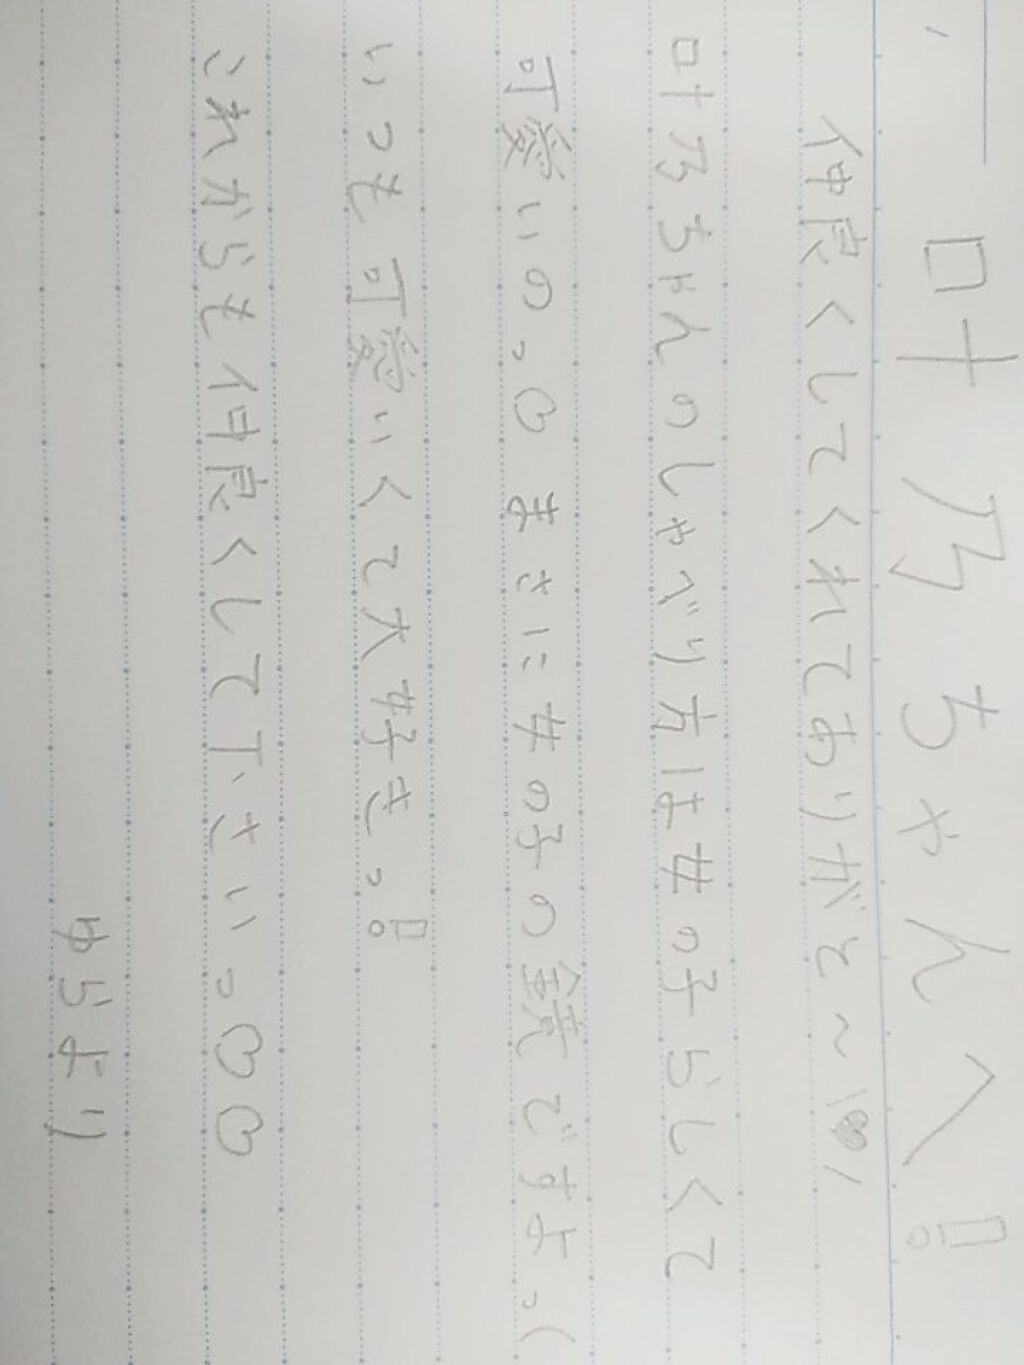 叶乃ちゃんへ!
仲良くしてくれてありがと〜♥
叶乃ちゃんのしゃべり方は女の子らしくて
可愛いのっ♡まさに女の子の鏡ですよっ(
いつも可愛いくて大好きっ!
これからも仲良くして下さいっ♡♡
ゆらより